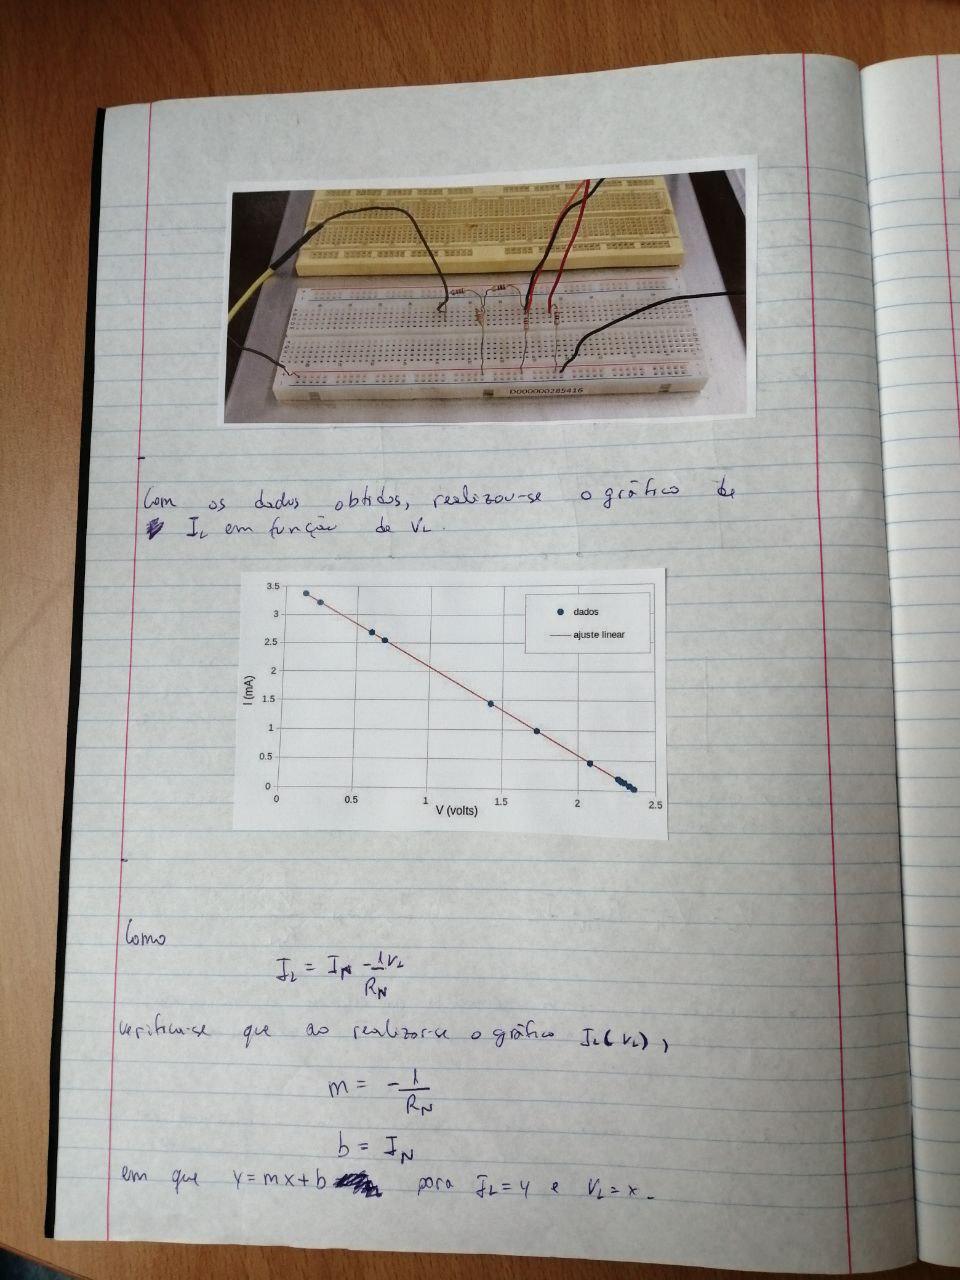 D000000285416
Com os dados obtidos, realizou-se o gráfico de
IL em função de VL.
3.5
3
2.5
2
1.5
1
0.5
0
I (mA)
dados
ajuste linear
0 0.5 1 1.5 2 2.5
V (volts)
Como
IL = IN - 1/RN VL
verifica-se que ao realizar-se o gráfico IL(VL),
m = - 1/RN
b = IN
em que y=mx+b para IL=y e VL=x.